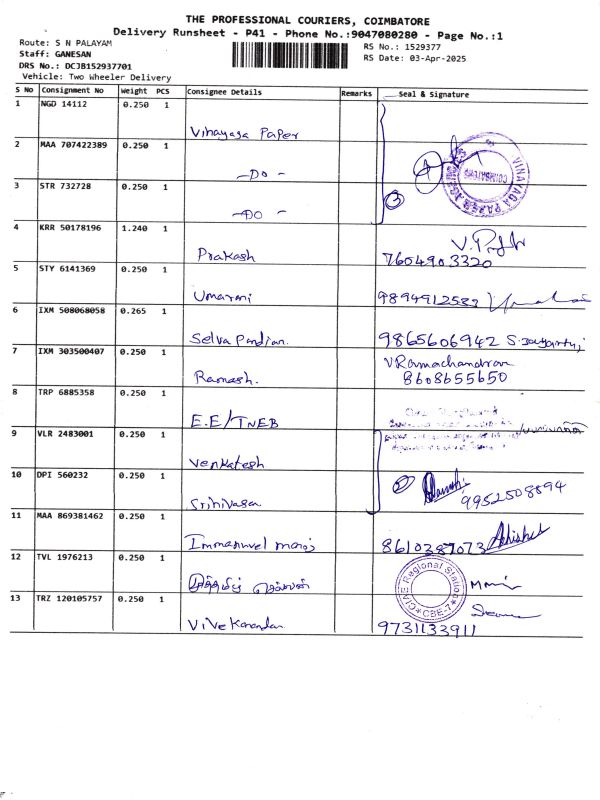 THE PROFESSIONAL COURIERS, COIMBATORE
Delivery Runsheet - P41 - Phone No.:9047080280 - Page No.:1
Route: S N PALAYAM
Staff: GANESAN
DRS No.: DCJB152937701
Vehicle: Two Wheeler Delivery
RS No.: 1529377
RS Date: 03-Apr-2025
S No Consignment No Weight PCS Consignee Details Remarks Seal & Signature
1 NGD 14112 0.250 1 Vinayaga Paper
2 MAA 707422389 0.250 1 -Do-
3 STR 732728 0.250 1 -DO- 3
VINAYAGA PAPER COIMBATORE
4 KRR 50178196 1.240 1 Prakash 7604903320
5 STY 6141369 0.250 1 Umarani 9894912533
6 IXM 508068058 0.265 1 Selva Pandian. 9865606942
7 IXM 303500407 0.250 1 Ramash. V Ramachandran
8608655650
8 TRP 6885358 0.250 1 E.E/TNEB
9 VLR 2483001 0.250 1 Venkatesh
10 DPI 560232 0.250 1 Srinivasan 2 9952508894
11 MAA 869381462 0.250 1 Immanuvel 8610387073 Abhishek
12 TVL 1976213 0.250 1
Regional Station CBE-7
13 TRZ 120105757 0.250 1 Vivekanandan 9731133911